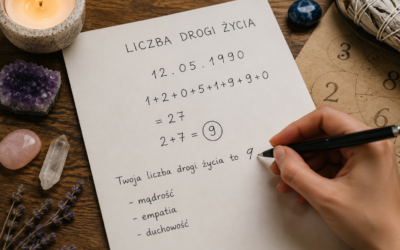 LICZBA DROGI ŻYCIA
12.05.1990
1+2+0+5+1+9+9+0
= 27
2+7 = 9
Twoja liczba drogi życia to 9
- mądrość
- empatia
- duchowość
3
2
8
6